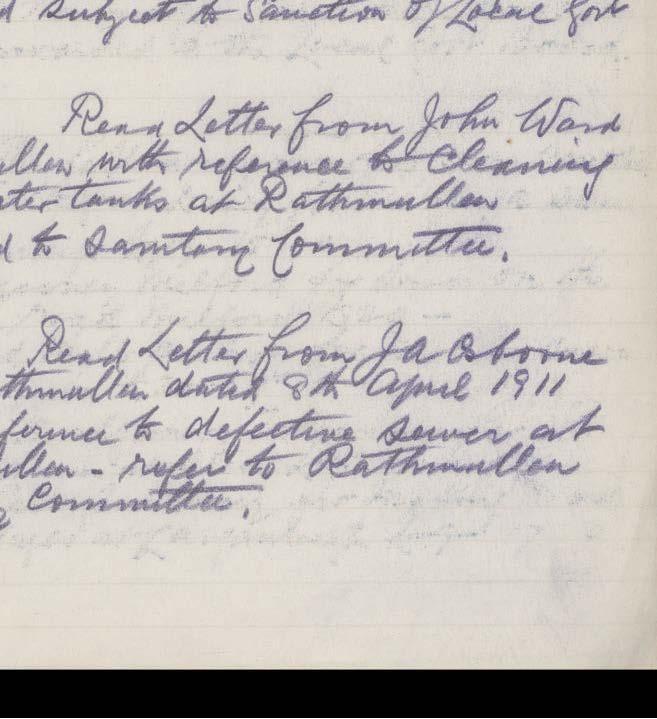 d subject to Sanction of Local Govt
Read Letter from John Ward
ullen with reference to Cleaning
ater tanks at Rathmullen
d to Sanitary Committee.
Read Letter from J A Osborne
thmullen dated 8th April 1911
ference to defective sewer at
ullen - refer to Rathmullen
Committee.